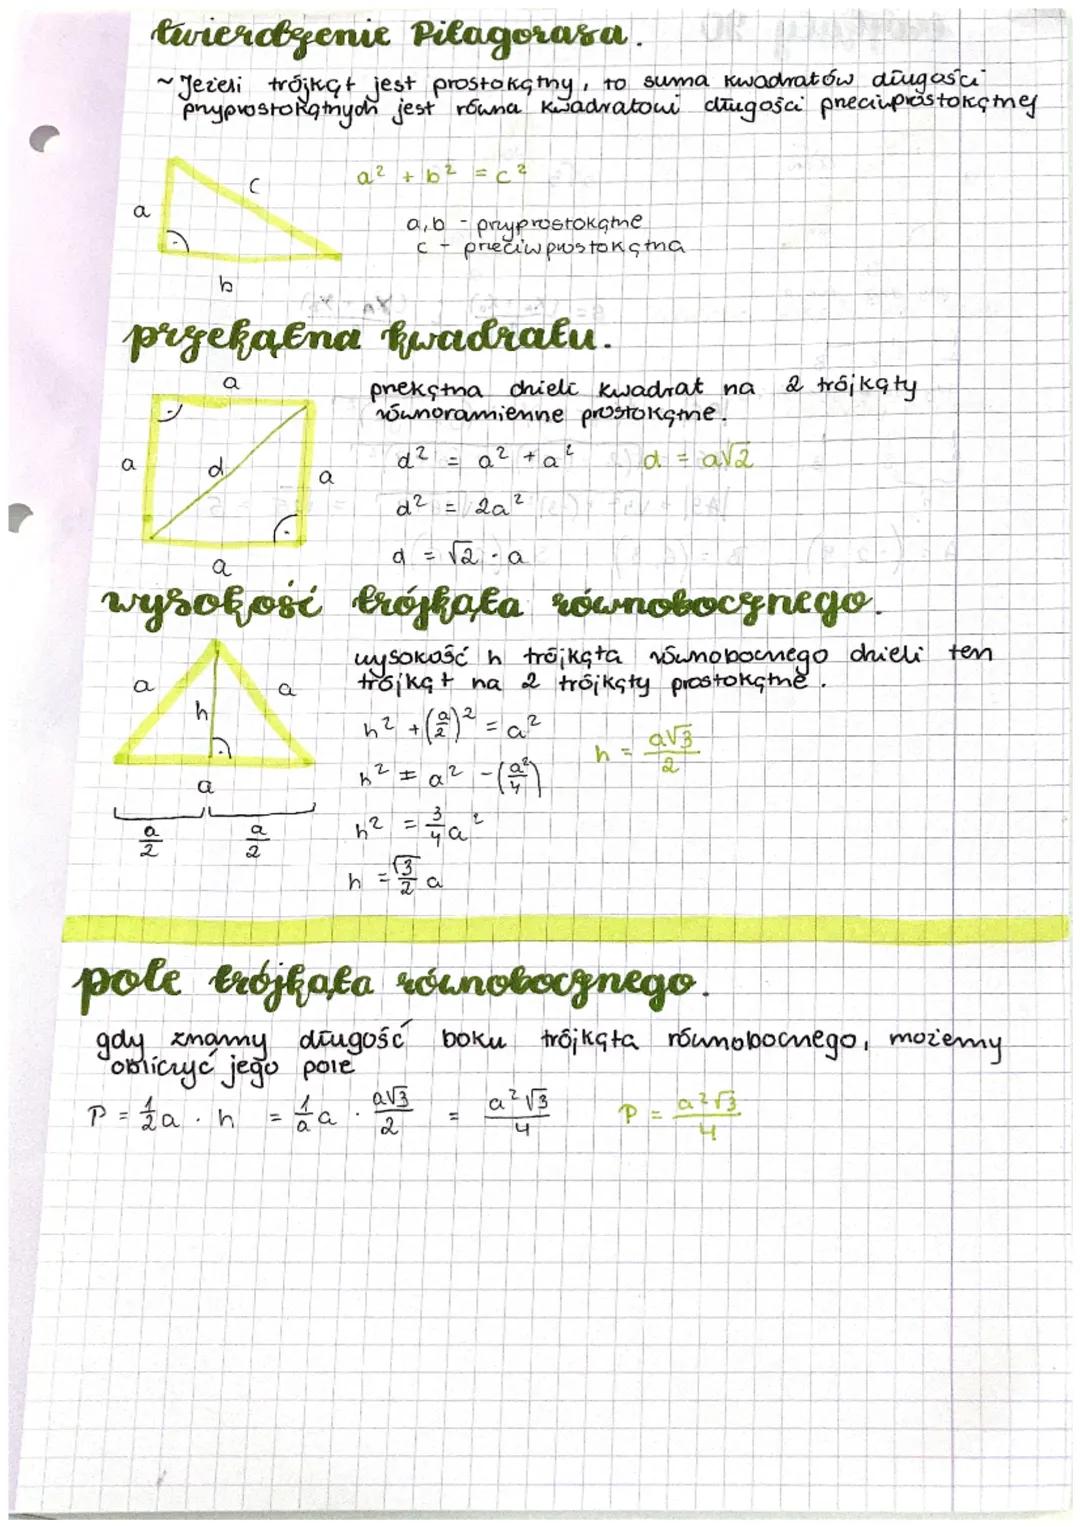 twierdzenie Pitagorasa.
~ Jeżeli trójkąt jest prostokątny, to suma kwadratów długości
przyprostokątnych jest równa kwadratowi długości przeciwprostokątnej
a² + b² = c²
c
a
b
a, b - przyprostokątne
c - przeciwprostokątna
przekątna kwadratu.
a
przekątna dzieli kwadrat na 2 trójkąty
równoramienne prostokątne.
a
d
a
a
d² = a² + a²
d = a√2
d² = 2a²
d = √2 · a
wysokość trójkąta równobocznego.
wysokość h trójkąta równobocznego dzieli ten
trójkąt na 2 trójkąty prostokątne.
a
a
h
a
a/2
a/2
h² + (a/2)² = a²
h² = a² - (a²/4)
h = a√3/2
h² = 3/4 a²
h = √3/2 a
pole trójkąta równobocznego.
gdy znamy długość boku trójkąta równobocznego, możemy
obliczyć jego pole
P = 1/2 a · h = 1/a a · a√3/2 = a²√3/4
P = a²√3/4